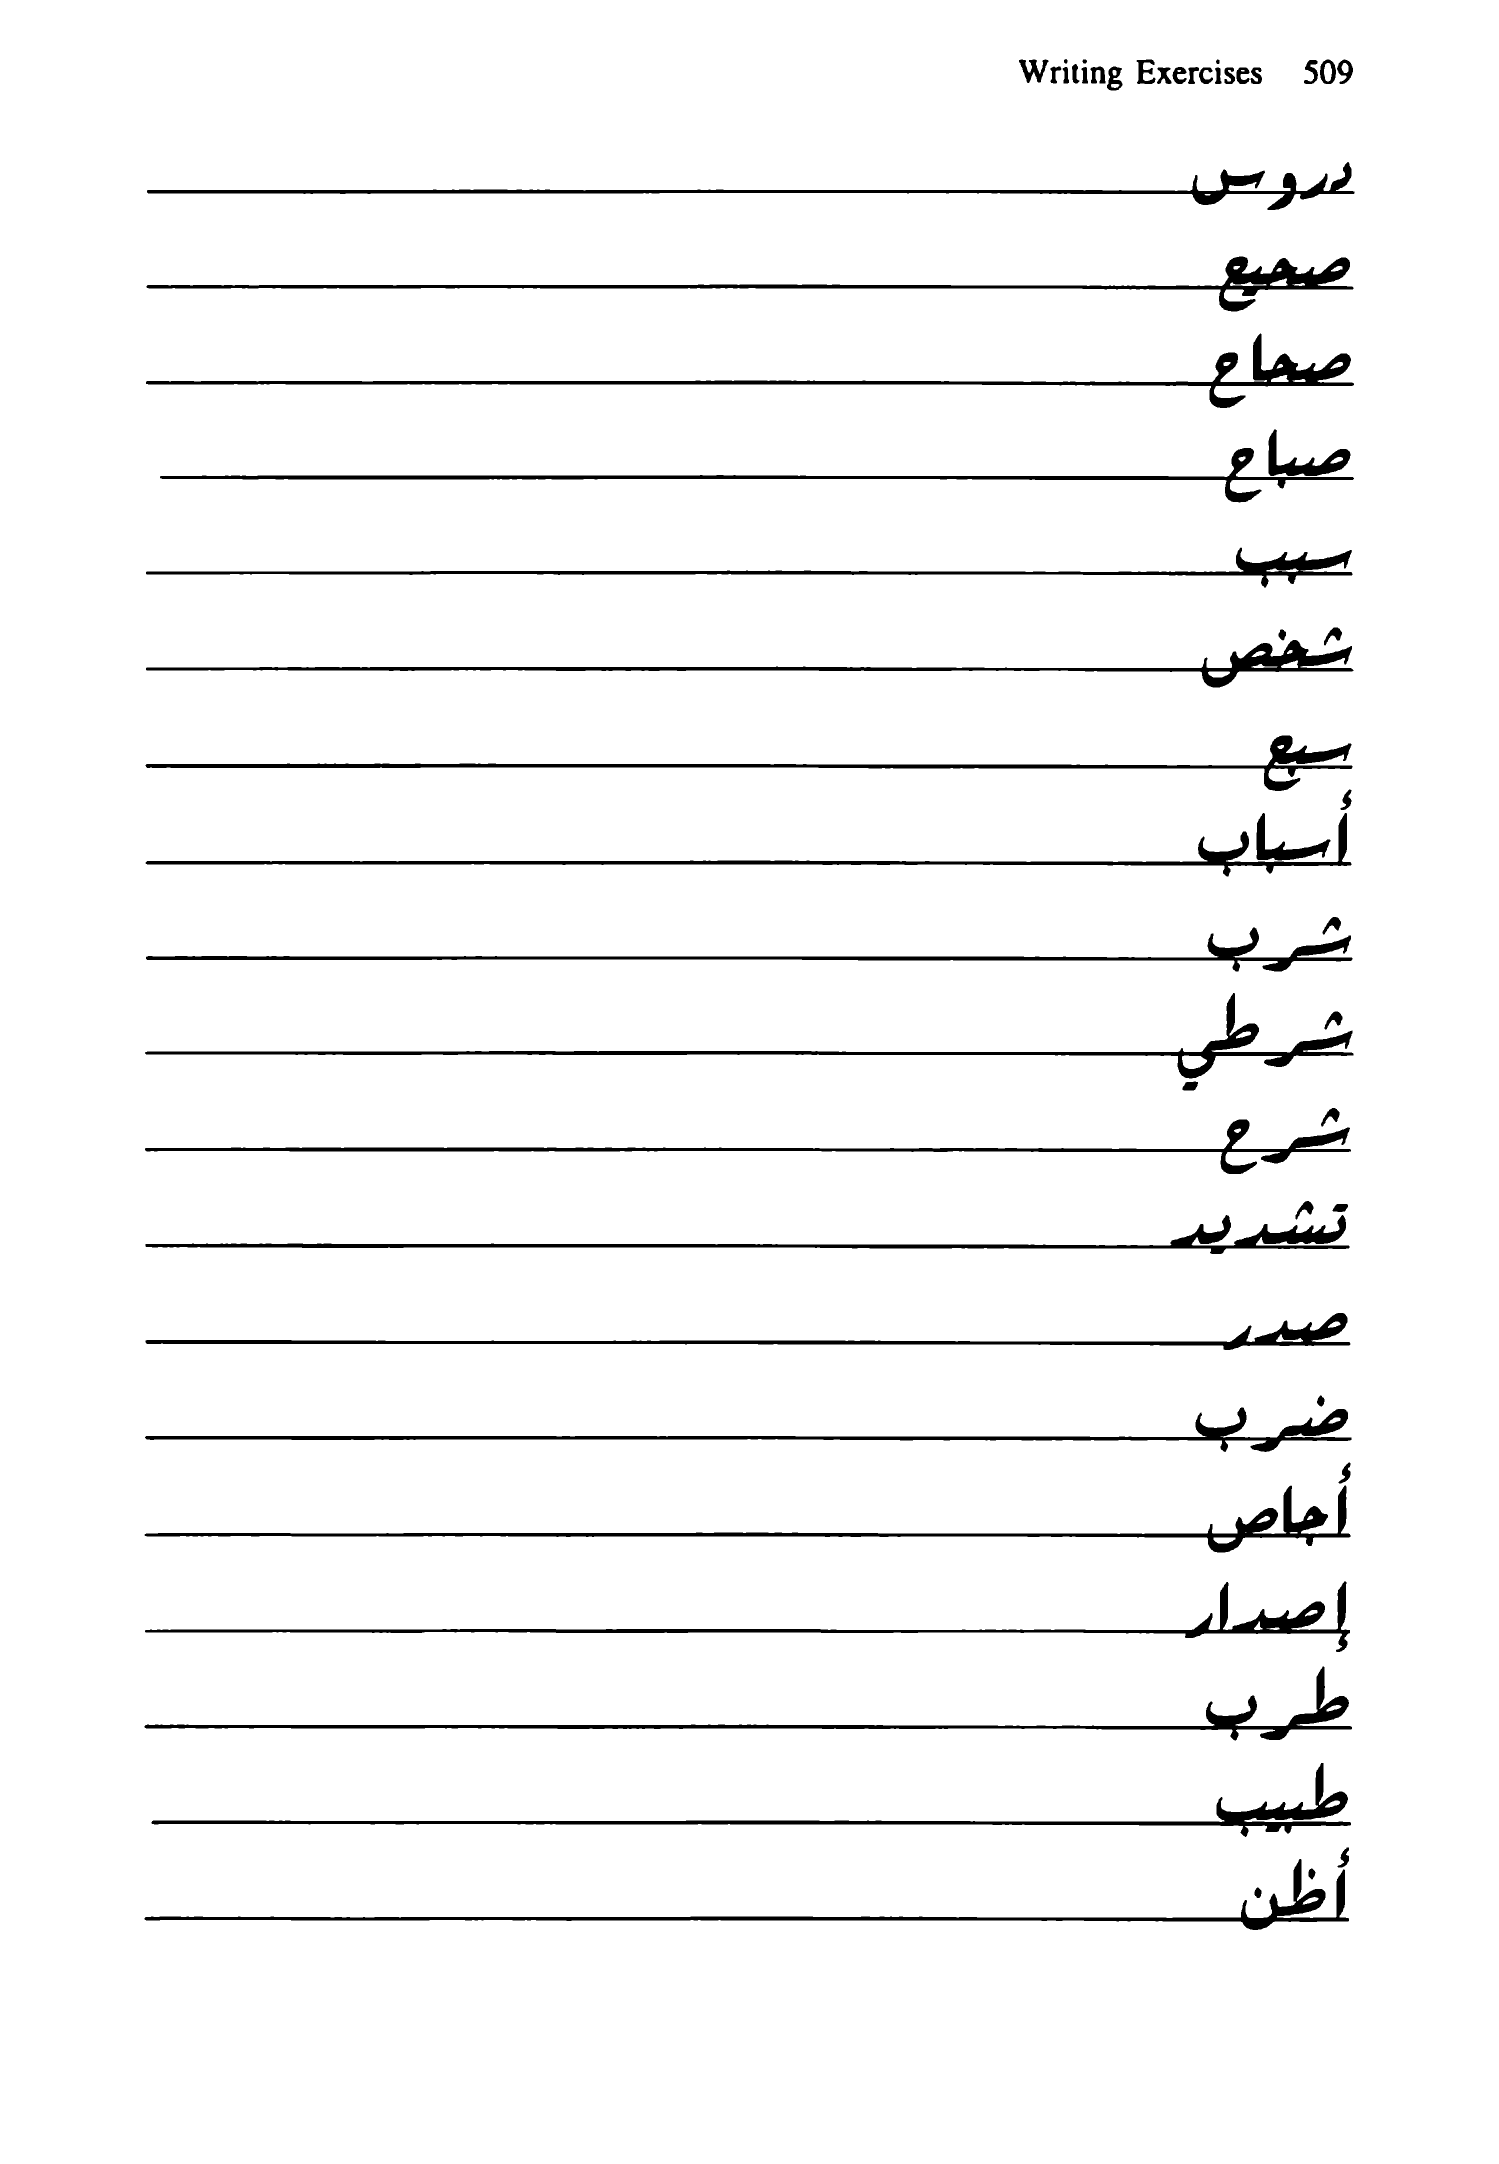 Writing Exercises 509
دروس
صحيح
صحاح
صباح
سبب
شخص
سبع
أسباب
شرب
شرطي
شرح
تشديد
صدر
ضرب
أجاص
إصدار
طرب
طبيب
أظن